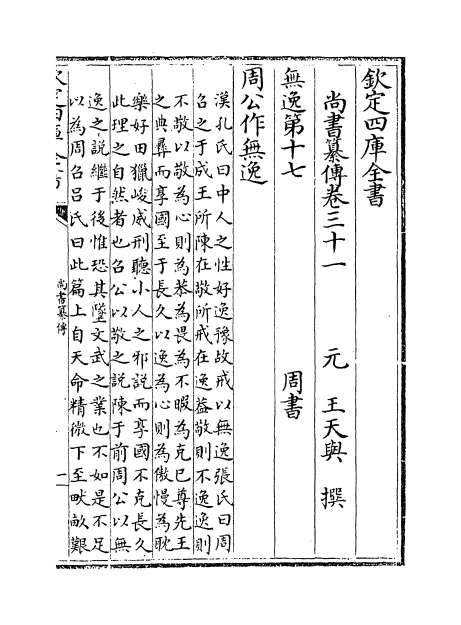 欽定四庫全書
尚書纂傳卷三十一　元　王天與　撰
無逸第十七　周書
周公作無逸
漢孔氏曰中人之性好逸豫故戒以無逸張氏曰周
召之于成王所陳在敬所戒在逸葢敬則不逸逸則
不敬以敬為心則為恭為畏為不暇為克已尊先王
之典彞而享國至于長久以逸為心則為傲慢為耽
樂好田獵峻威刑聽小人之邪說而享國不克長久
此理之自然者也召公以敬之說陳于前周公以無
逸之說繼于後惟恐其墜文武之業也不如是不足
以為周召吕氏曰此篇上自天命精微下至畎畝艱
欽定四庫全書
尚書纂傳
一